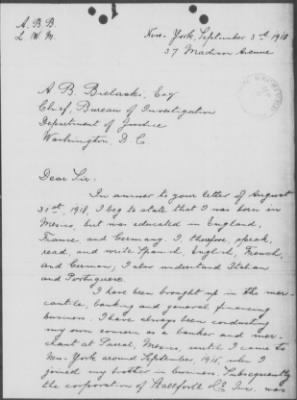 A. B. B.
L. W. M.
New York, September 3rd 1918
37 Madison Avenue
A. B. Bielaski, Esq
Chief, Bureau of Investigation
Department of Justice
Washington, D. C.
Dear Sir:
In answer to your letter of August
31st, 1918, I beg to state that I was born in
Mexico, but was educated in England,
France and Germany. I, therefore, speak,
read, and write Spanish, English, French,
and German; I also understand Italian
and Portuguese.
I have been brought up in the mer-
cantile, banking and general financing
business. I have always been conducting
my own concern as a banker and mer-
chant at Parral, Mexico, until I came to
New York around September, 1915, when I
joined my brother in business. Subsequently
the corporation of Stallforth & Co. Inc. was